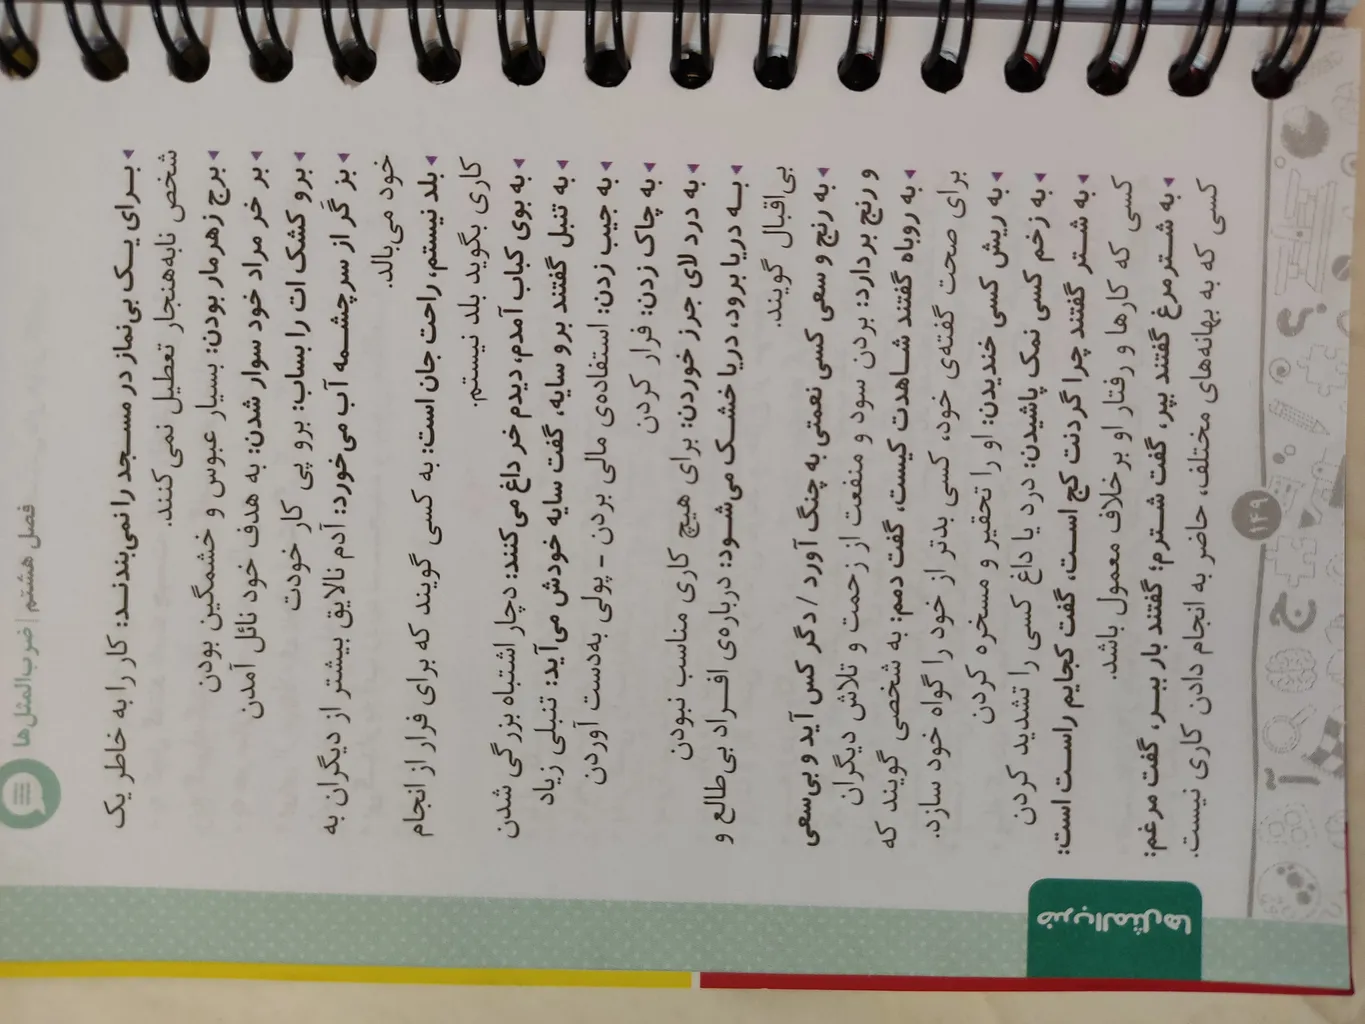 فصل هشتم | ضرب‌المثل‌ها
بـرای یـک بی‌نماز در مسـجد را نمی‌بندنـد: کار را به خاطر یک
شخص نابه‌هنجار تعطیل نمی‌کنند.
برج زهرمار بودن: بسیار عبوس و خشمگین بودن
بر خر مراد خود سوار شدن: به هدف خود نائل آمدن
برو کشک ات را بساب: برو پی کار خودت
بز گر از سرچشـمه آب می‌خورد: آدم نالایق بیشتر از دیگران به
خود می‌بالد.
بلد نیستم، راحت جان است: به کسی گویند که برای فرار از انجام
کاری بگوید بلد نیستم.
به بوی کباب آمدم، دیدم خر داغ می‌کنند: دچار اشتباه بزرگی شدن
به تنبل گفتند برو سایه، گفت سایه خودش می‌آید: تنبلی زیاد
به جیب زدن: استفاده‌ی مالی بردن - پولی به‌دست آوردن
به چاک زدن: فرار کردن
به درد لای جرز خوردن: برای هیچ کاری مناسب نبودن
بـه دریا برود، دریا خشـک می‌شـود: درباره‌ی افـراد بی‌طالع و
بی‌اقبال گویند.
به رنج و سعی کسی نعمتی به چنگ آورد / دگر کس آید و بی‌سعی
و رنج بردارد: بردن سود و منفعت از زحمت و تلاش دیگران
به روباه گفتند شـاهدت کیست، گفت دمم: به شخصی گویند که
برای صحت گفته‌ی خود، کسی بدتر از خود را گواه خود سازد.
به ریش کسی خندیدن: او را تحقیر و مسخره کردن
به زخم کسی نمک پاشیدن: درد یا داغ کسی را تشدید کردن
به شـتر گفتند چرا گردنت کج اسـت، گفت کجایم راسـت است:
کسی که کارها و رفتار او برخلاف معمول باشد.
به شـترمرغ گفتند بپر، گفت شـترم؛ گفتند بار ببـر، گفت مرغم:
کسی که به بهانه‌های مختلف، حاضر به انجام دادن کاری نیست.
۱۴۹
ضرب‌المثل‌ها